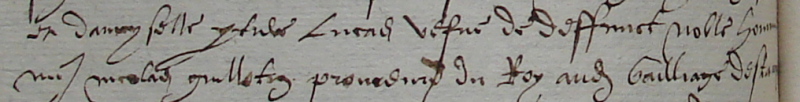 et damoyselle Lucas vefue de deffunct noble homme
nicolas guilloteau procureur du Roy aud bailliage destam